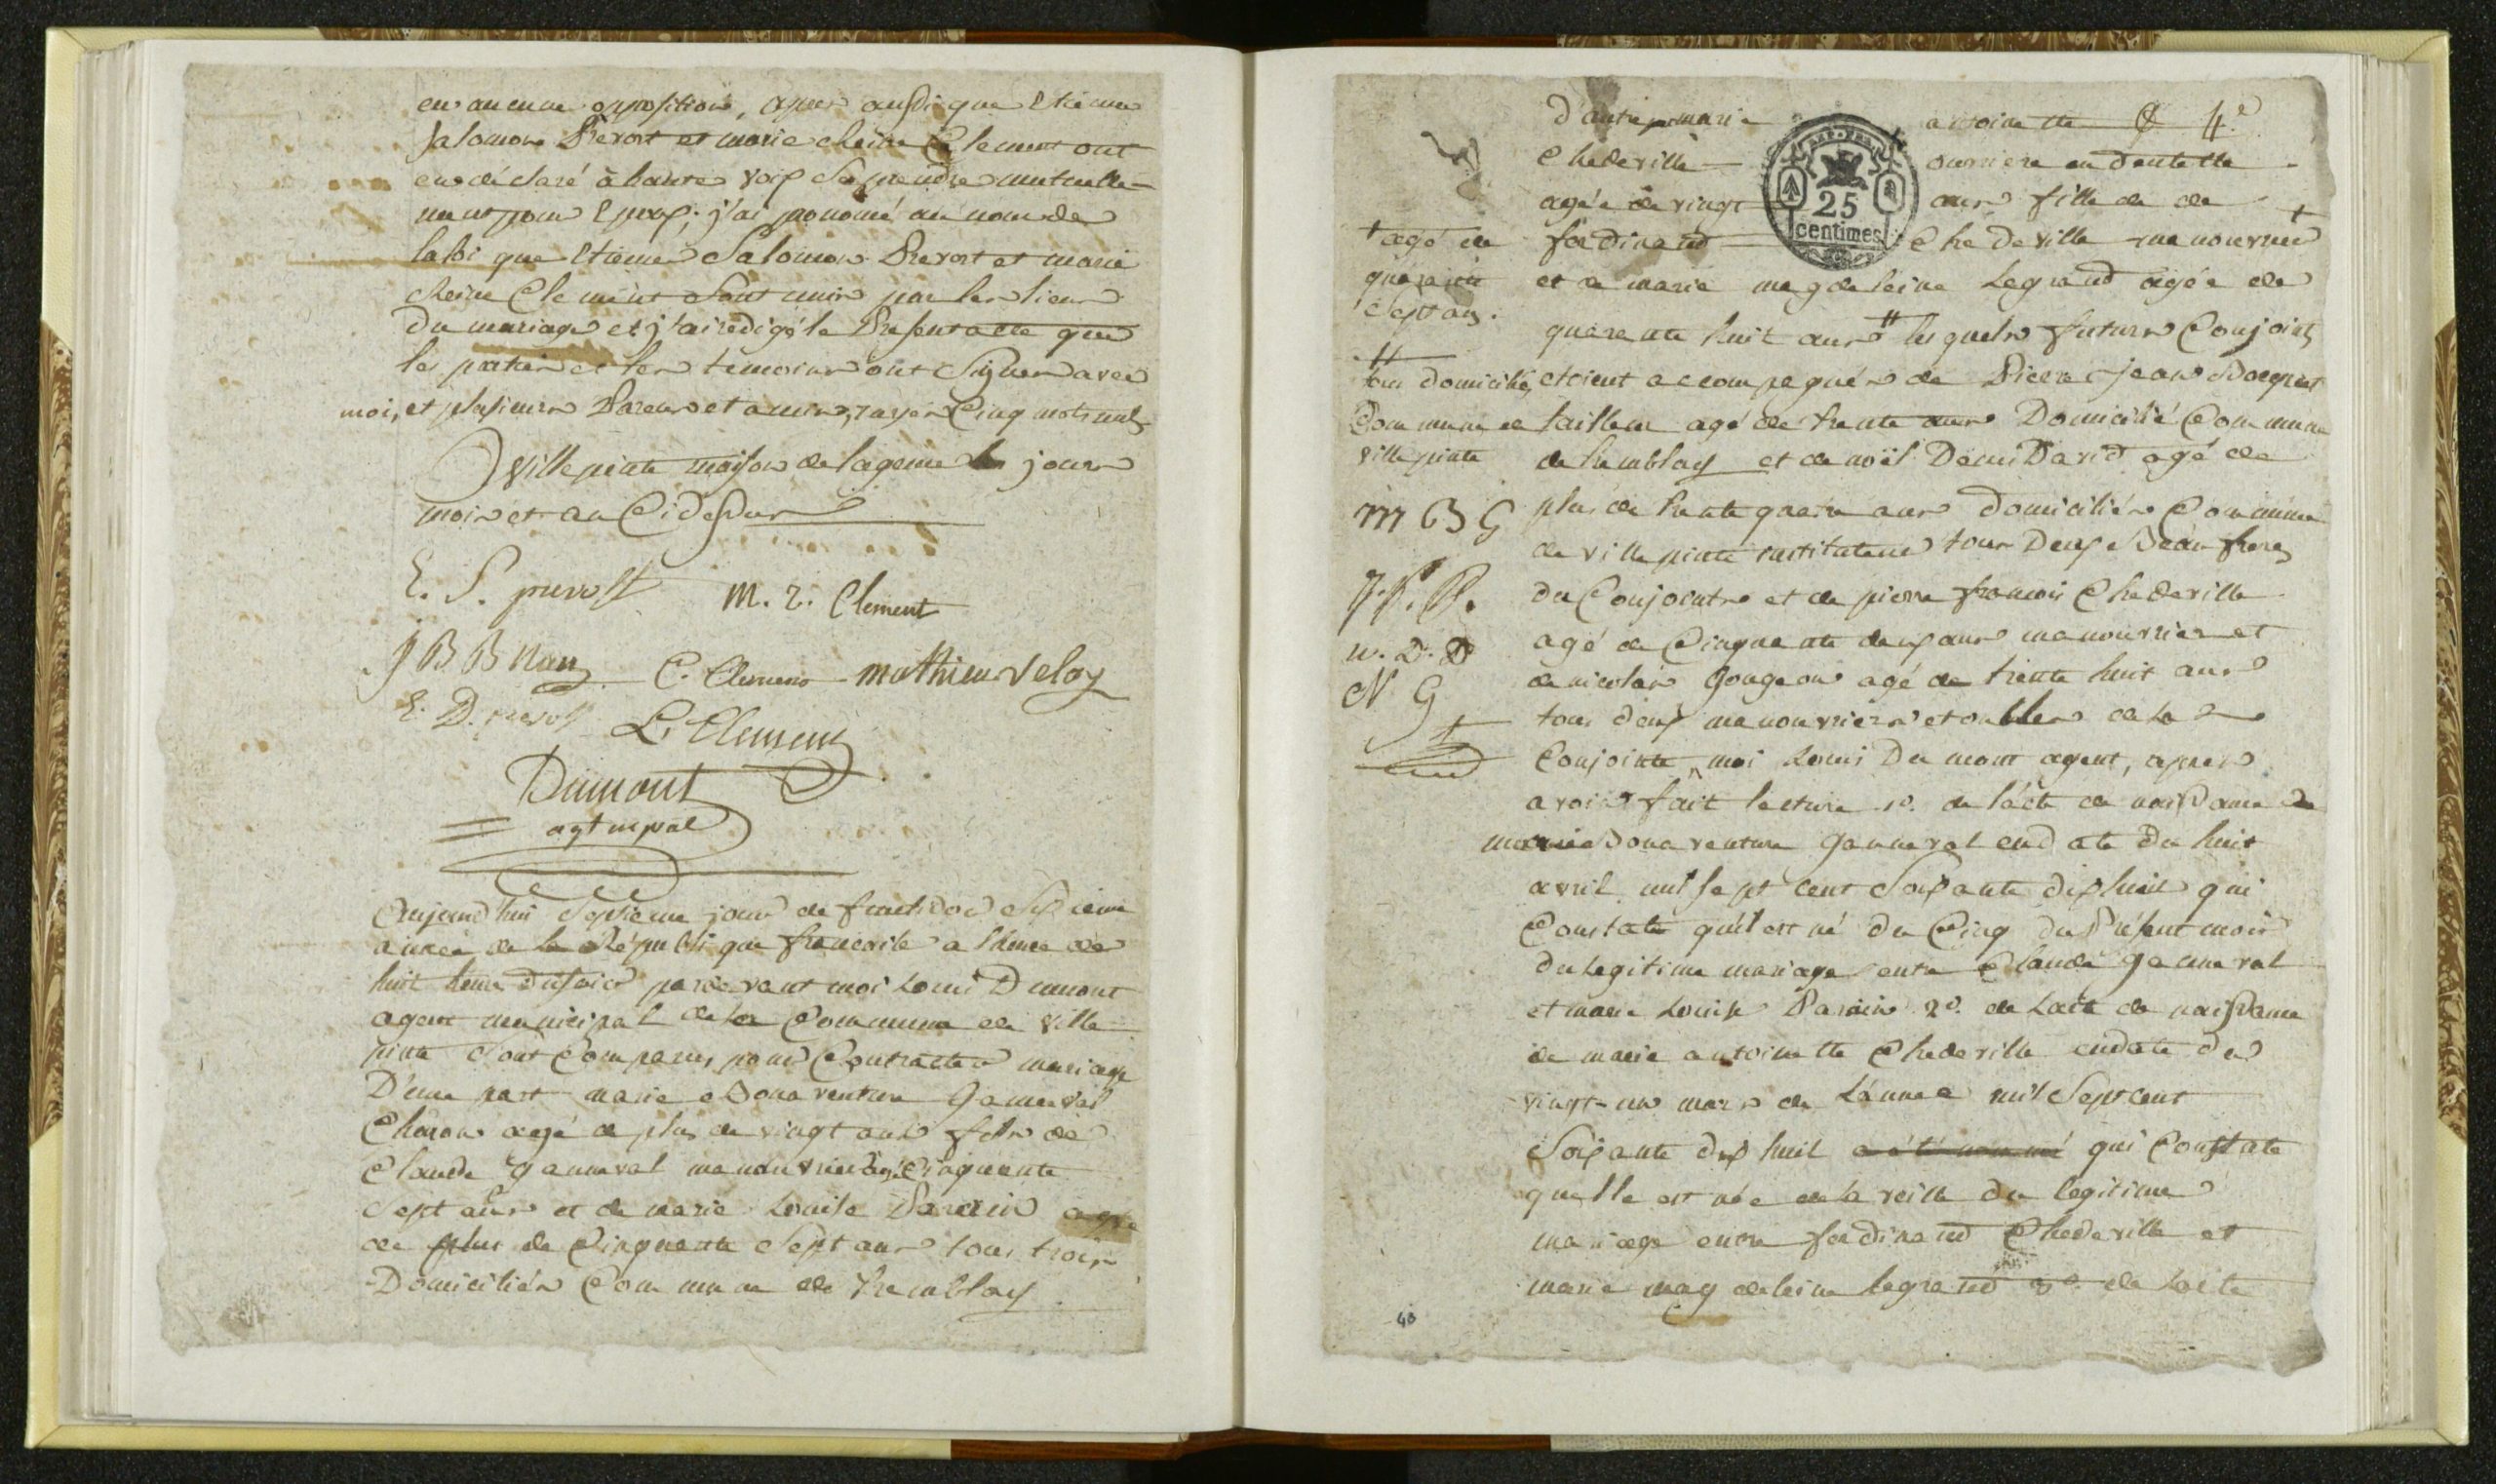 en aucune opposition, apres aussi que Etienne
Salomon Prevost et marie Reine Clement ont
eu déclaré à haute voix se prendre mutuelle-
ment pour Epoux; j'ai prononcé au nom de
la loi que Etienne Salomon Prevost et marie
Reine Clement sont unis par les liens
du mariage et j'ai redigé le Present acte que
les parties et les temoins ont signer avec
moi, et plusieurs Parens et amies, rayer Cinq mots nuls
villepinte maison de lagence les jour
mois et an Cidessus
E. S. prevost M. r. Clement
J B B Nan C. Clement mathieu veloy
E. D. prevost L. Clement
Dumont
agt mpal
Aujourd'hui Septieme jour de fructidor Sixieme
année de la République francaise a lheure de
huit heure du soir pardevant moi Louis Dumont
agent municipal de la Commune de ville
pinte sont Comparus pour Contracter mariage
D'une part marie Bonaventure Ganneval
Charon agé de plus de vingt ans fils de
Claude Ganneval manouvrier agé Cinquante
Sept ans et de marie Louise Parain agée
de plus de Cinquante Sept ans tous trois
Domiciliés Commune de Tremblay
d'autre part marie antoinette 4.e
Chedeville ouvriere en dentelle
agée de vingt ans fille de de
AMP. FRAN.
25
centimes
† agé de
quarante
Sept ans.
ferdinand Chedeville manouvrier †
et de marie magdeleine Legrand agée de
quarente huit ans # lesquels futurs Conjoints
#
tous domiciliés
Commune de
villepinte
etoient accompagnés de Pierre jean Bocquet
tailleur agé de trente ans Domicilié Commune
de tremblay et de noël Denis David agé de
m B G
plus de trente quatre ans domiciliés Commune
de villepinte instituteur tous Deux Beau freres
J. P. B.
du Conjointre et de pierre francois Chedeville
n. D. D
agé de Cinquante deux ans manouvrier et
N G
de nicolas Gougeon agé de trente huit ans
tous deux manouvriers et oncles de la
Conjointe moi Louis Dumont agent, apres
avoir fait lecture 1°. de l'acte de naissance de
marie Bonaventure Ganneval en date du huit
avril mil sept cent Soixante dix huit qui
Constate qu'il est né du Cinq du Présent mois
du legitime mariage entre Claude Ganneval
et marie Louise Parain 2°. de Lacte de naissance
de marie antoinette Chedeville en date du
vingt-un mars de L'année mil Sept cent
Soixante dix huit a été nommé qui Constate
quelle est née de la veille du legitime
mariage entre ferdinand Chedeville et
marie magdeleine legrand 3°. de Lacte
40